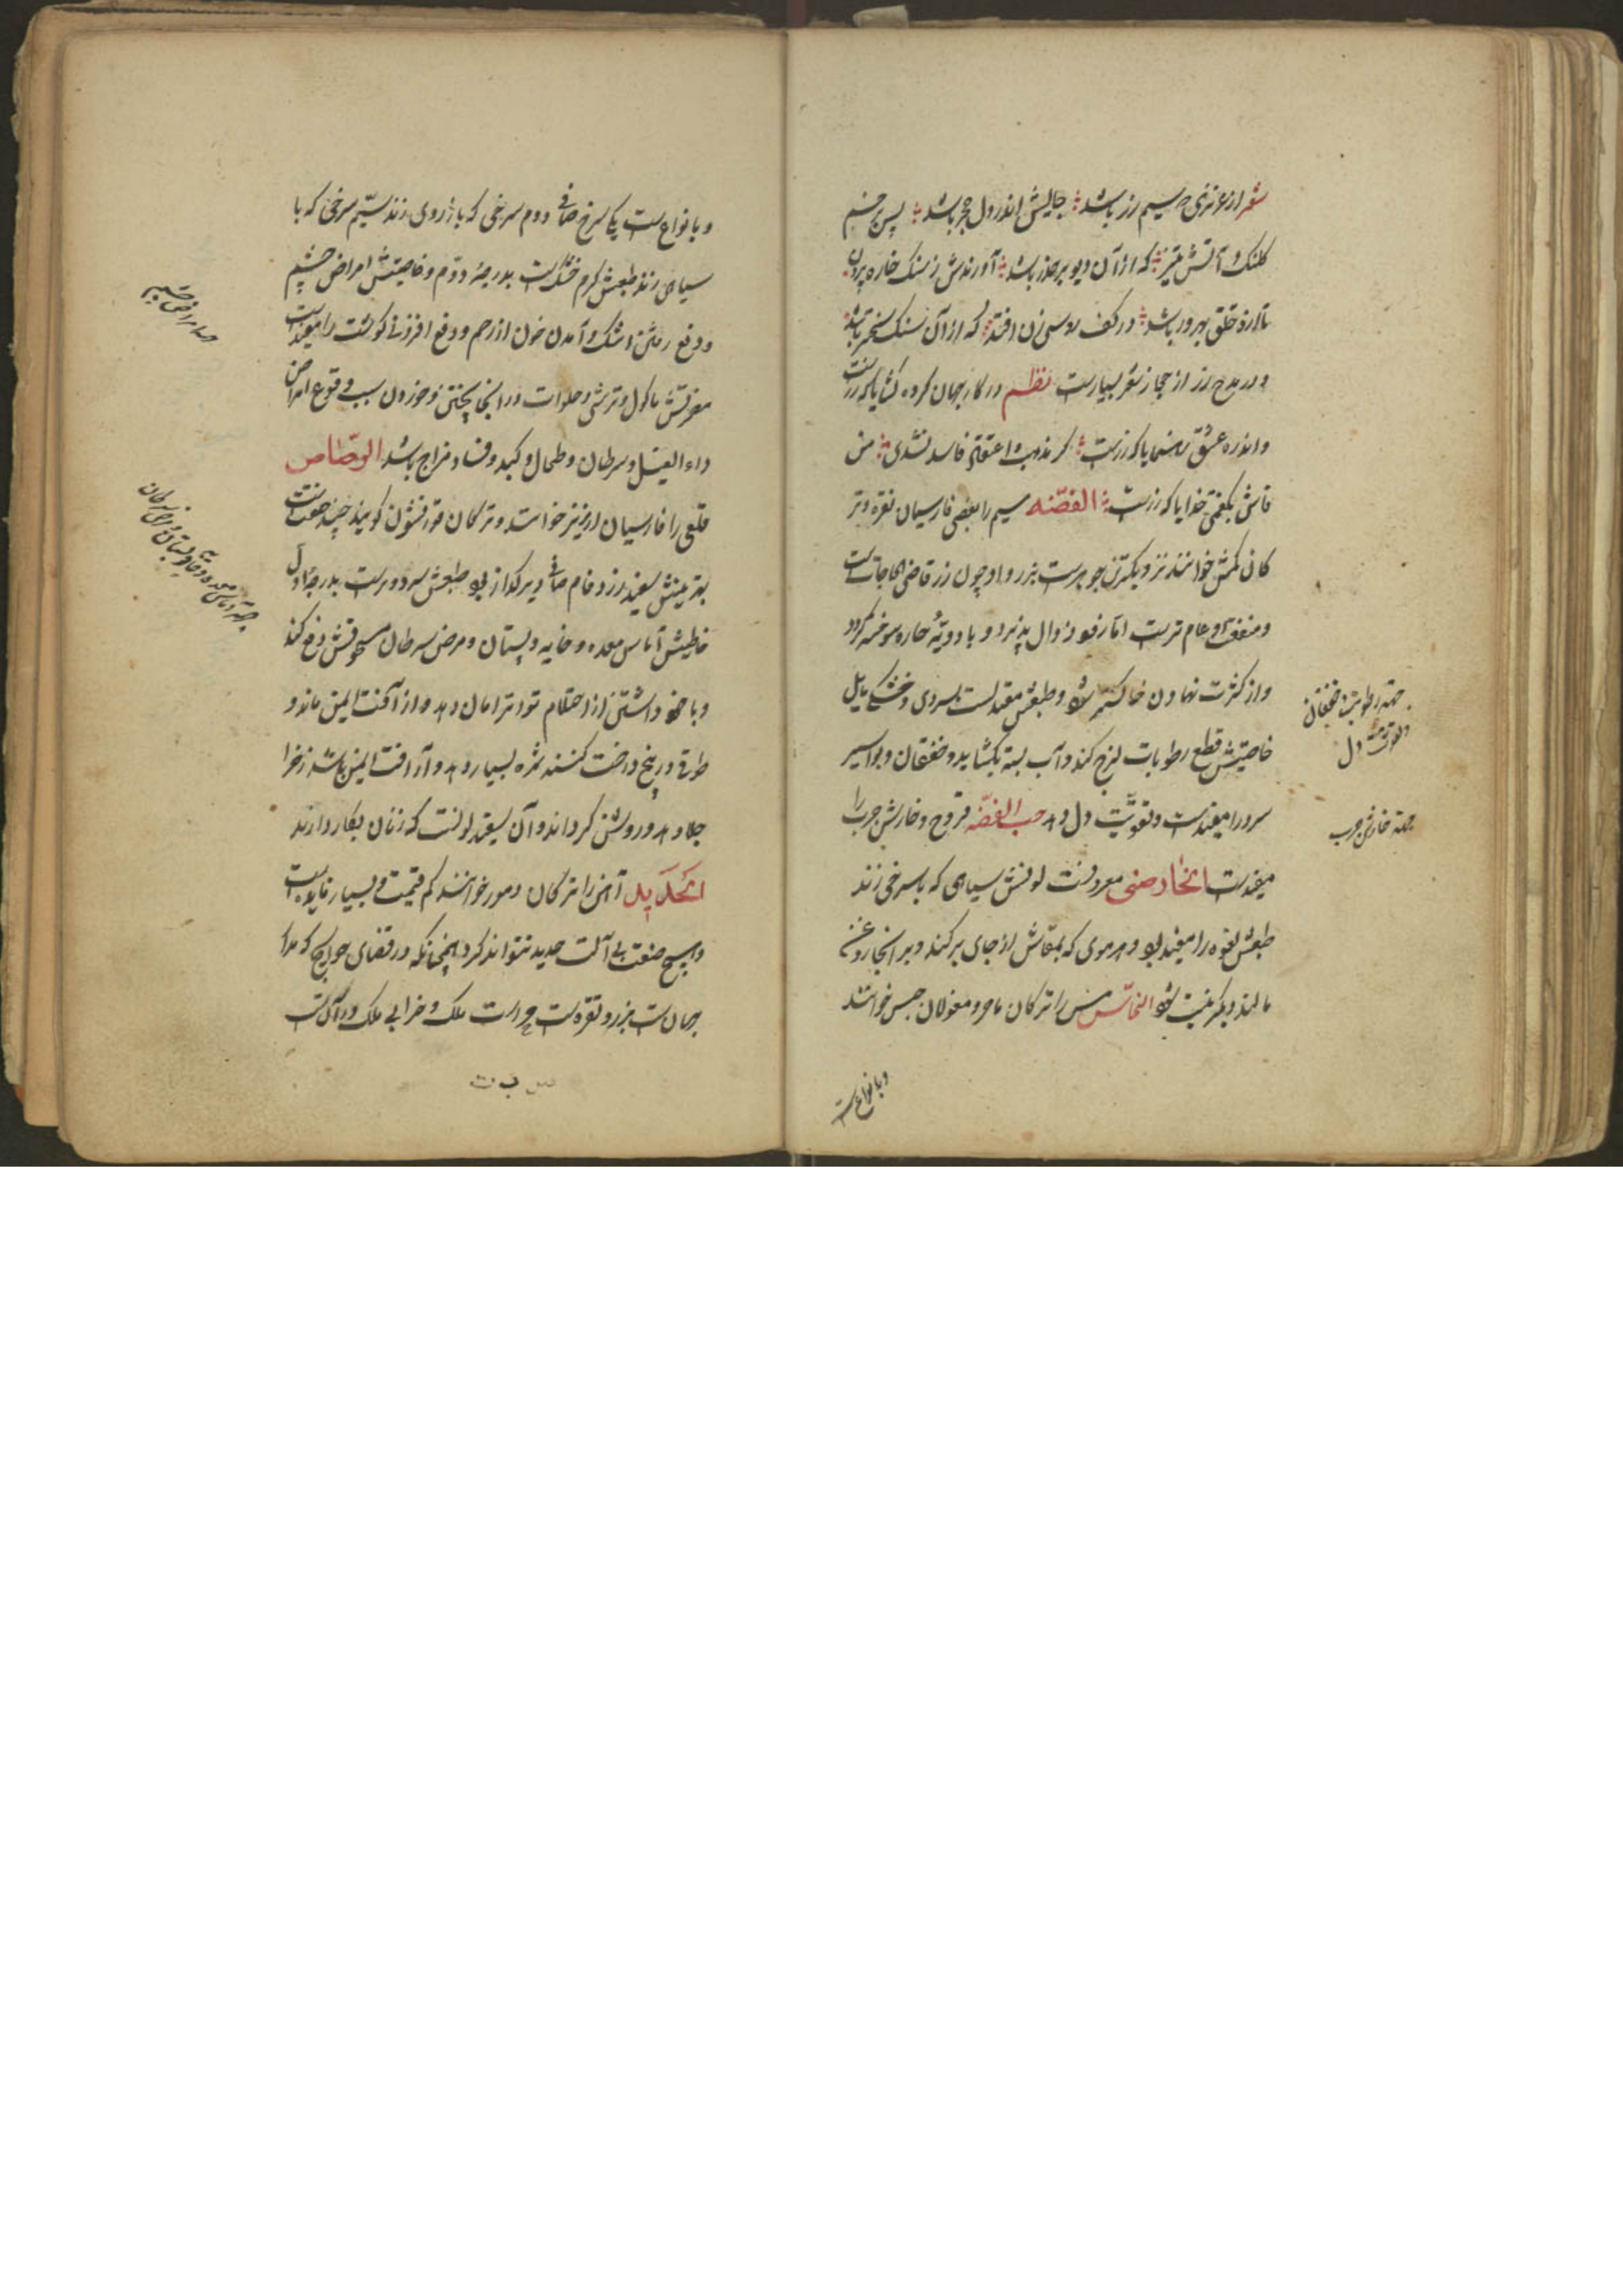 شعر از عزیزی چه سیم زر باشد جایش اندر دل حجر باشد پس بزخم
کلنک و آتش تیز که از آن دیو بر حذر باشد آورندش ز سنک خاره برون
تا ازو خلق بهره‌ور باشد در کف روسبی‌زن افتد که از آن سنک سخره‌تر باشد
و در مدح زر از حجاز شعر بسیارست نظم در کار جهان کره کشایا که زرست
واندر ره عشق رهنمایا که زرست کر مذهب و اعتقاد فاسد نشدی من
فاش بکفتمی خدایا که زرست الفضّه سیم را بعضی فارسیان نقره و تر
کان کمش خوانند نزدیکترین جوهرست بزر و او چون زر قاضی الحاجاتست
و منفعت او عام ترست اما زفو زوال پذیرد و با دویهٔ حاره سوخته کردد
و از کثرت نهادن خاکستر شود و طبعش معتدلست بسردی و خشکی مایل
خاصیتش قطع رطوبات لزج کند و آب بسته بکشاید و خفقان و بواسیر
سرد را مفیدست و تقویّت دل دهد حب الفضّه قروح و خارش جرب را
مفیدست الخارصینی معروفست لونش سیاهی که با سرخی زند
طبعش لقوه را مفید بود و هر موی که بمنقاش از جای برکنند و بر انجا روغن
مالند دیکر نینبت شود النحاس مس را ترکان باقر و مغولان جس خوانند
جهته رطوبت و خفقان
و تقویت دل
جهته خارش جرب
و بانواعست
و بانواعست یکی سرخ صافی دوم سرخی که با زردی زند سیّم سرخی که با
سیاهی زند طبعش کرم خشکست بدرجهٔ دوّم و خاصیتش امراض چشم
و دفع رفتن اشک و آمدن خون از رحم و دفع افزونی کوشت را مفیدست
معرفتش ماکول و ترشی و حلوات در انجا پختن و خوردن سبب وقوع امراض
داء الفیل و سرطان و طحال و کبد و فساد مزاج باشد الرصّاص
قلعی را فارسیان ارزیز خوانند و ترکان قورقشون کویند چند صفتست
بهترینش سفید زرد فام صافی دیر کداز بود طبعش سرد و ترست بدرجهٔ اول
خاصیتش آماس معده و خایه و پستان و مرض سرطان مسحوقش دفع کند
و با خود داشتن از احتلام تواتر امان دهد و از آفت ایمن ماند و
طوقی در بیخ درخت کنند ثمره بسیار دهد و از آفت ایمن باشد زخم را
جلا دهد و روشن کرداند و آن سفیدابست که زنان بکار دارند
الحدید آهن را ترکان دمور خوانند کم قیمت و بسیار فایده است
و هیچ صنعت بی آلت حدید نتواند کرد همچنانکه در قضای حوایج که مدار
جهانست بزر و نقره‌ست حراست ملک و خرابی ملک در آنست
جهت امراض چشم
س ب ت